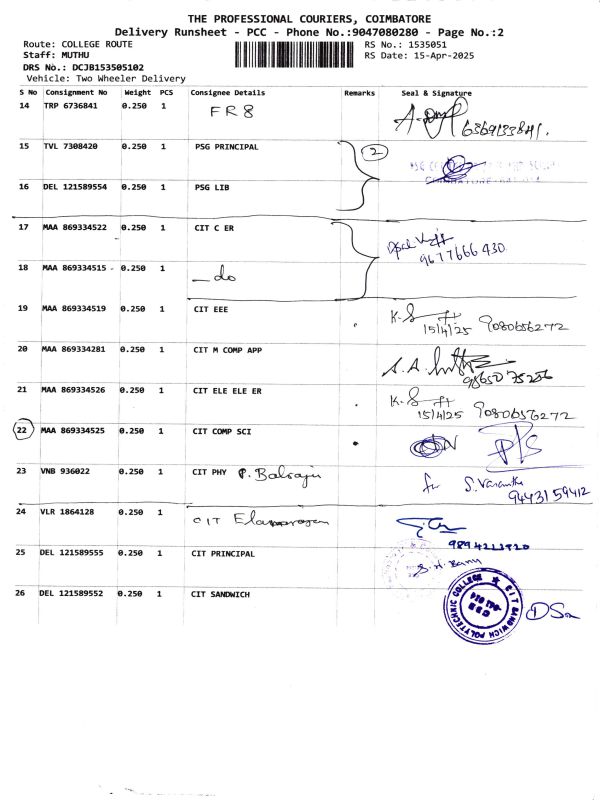 THE PROFESSIONAL COURIERS, COIMBATORE
Delivery Runsheet - PCC - Phone No.:9047080280 - Page No.:2
Route: COLLEGE ROUTE RS No.: 1535051
Staff: MUTHU RS Date: 15-Apr-2025
DRS No.: DCJB153505102
Vehicle: Two Wheeler Delivery
S No Consignment No Weight PCS Consignee Details Remarks Seal & Signature
14 TRP 6736841 0.250 1 FR8
6369133841.
15 TVL 7308420 0.250 1 PSG PRINCIPAL 2
16 DEL 121589554 0.250 1 PSG LIB
17 MAA 869334522 0.250 1 CIT C ER
9677666430
18 MAA 869334515 0.250 1 do
19 MAA 869334519 0.250 1 CIT EEE K.S
15/4/25 9080656272
20 MAA 869334281 0.250 1 CIT M COMP APP
9865075256
21 MAA 869334526 0.250 1 CIT ELE ELE ER K.S
15/4/25 9080656272
22 MAA 869334525 0.250 1 CIT COMP SCI
23 VNB 936022 0.250 1 CIT PHY P. Balraju for S. Vasantha
9443159412
24 VLR 1864128 0.250 1 CIT
9894211920
25 DEL 121589555 0.250 1 CIT PRINCIPAL
26 DEL 121589552 0.250 1 CIT SANDWICH
CIT SANDWICH POLYTECHNIC COLLEGE
CBE
641 014